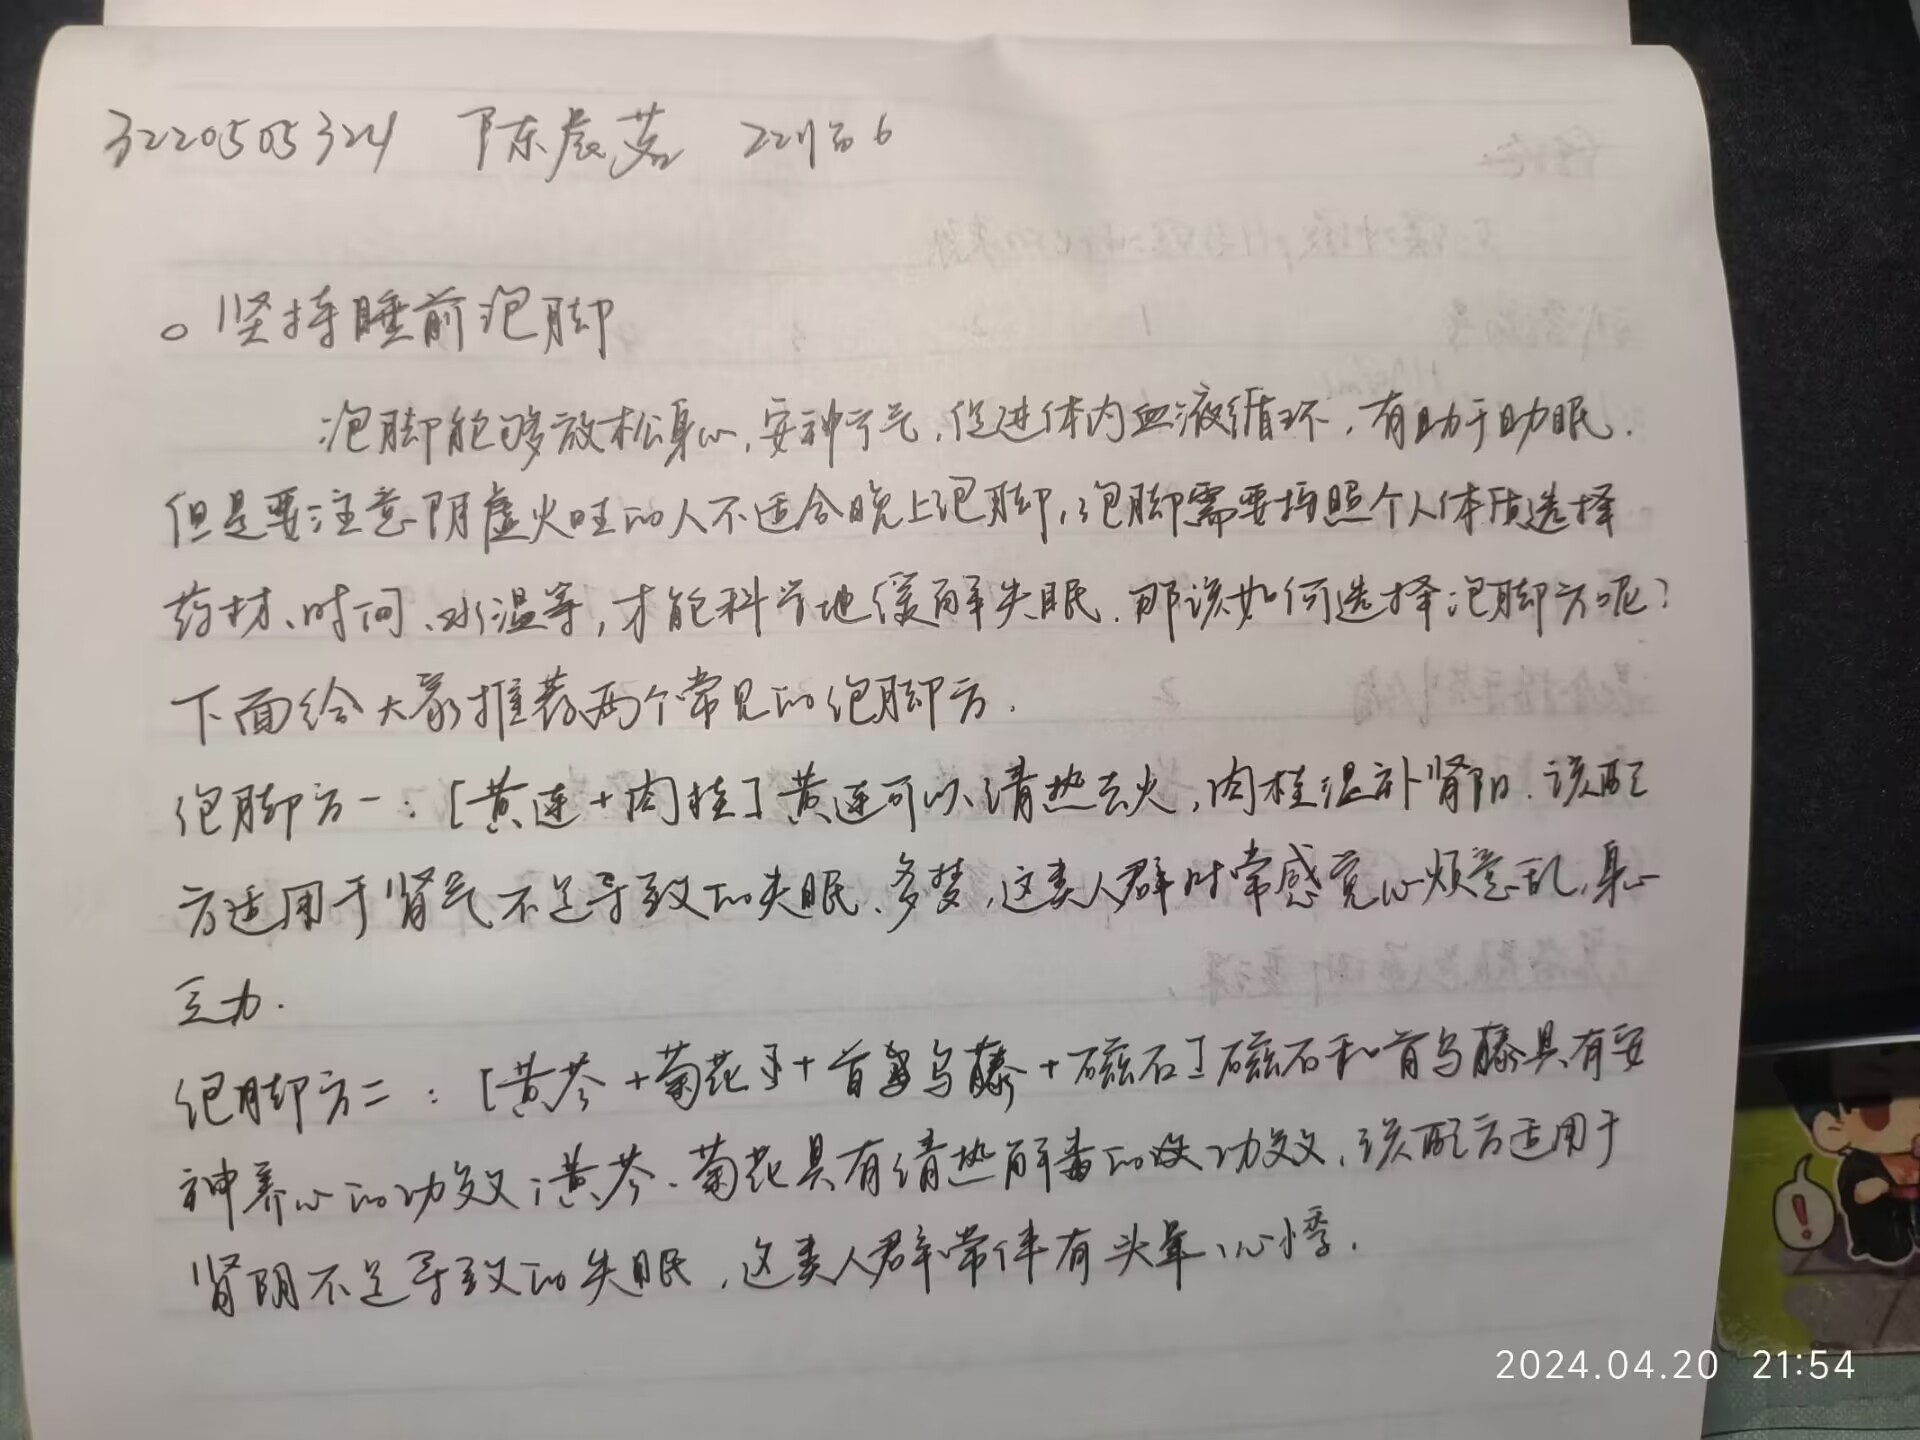 3220505324 陈晨茗 22临六6
。坚持睡前泡脚
泡脚能够放松身心,安神亏气,促进体内血液循环,有助于助眠.
但是要注意阴虚火旺的人不适合晚上泡脚,泡脚需要按照个人体质选择
药材、时间、水温等,才能科学地缓解失眠.那该如何选择泡脚方呢?
下面给大家推荐两个常见的泡脚方.
泡脚方一:[黄连+肉桂]黄连可以清热去火,肉桂温补肾阳.该配
方适用于肾气不足导致的失眠、多梦,这类人群时常感觉心烦意乱,身心
乏力.
泡脚方二:[黄芩+菊花+首乌藤+磁石]磁石和首乌藤具有安
神养心的功效;黄芩、菊花具有清热解毒的功效,该配方适用于
肾阴不足导致的失眠,这类人群常伴有头晕、心悸.
2024.04.20 21:54